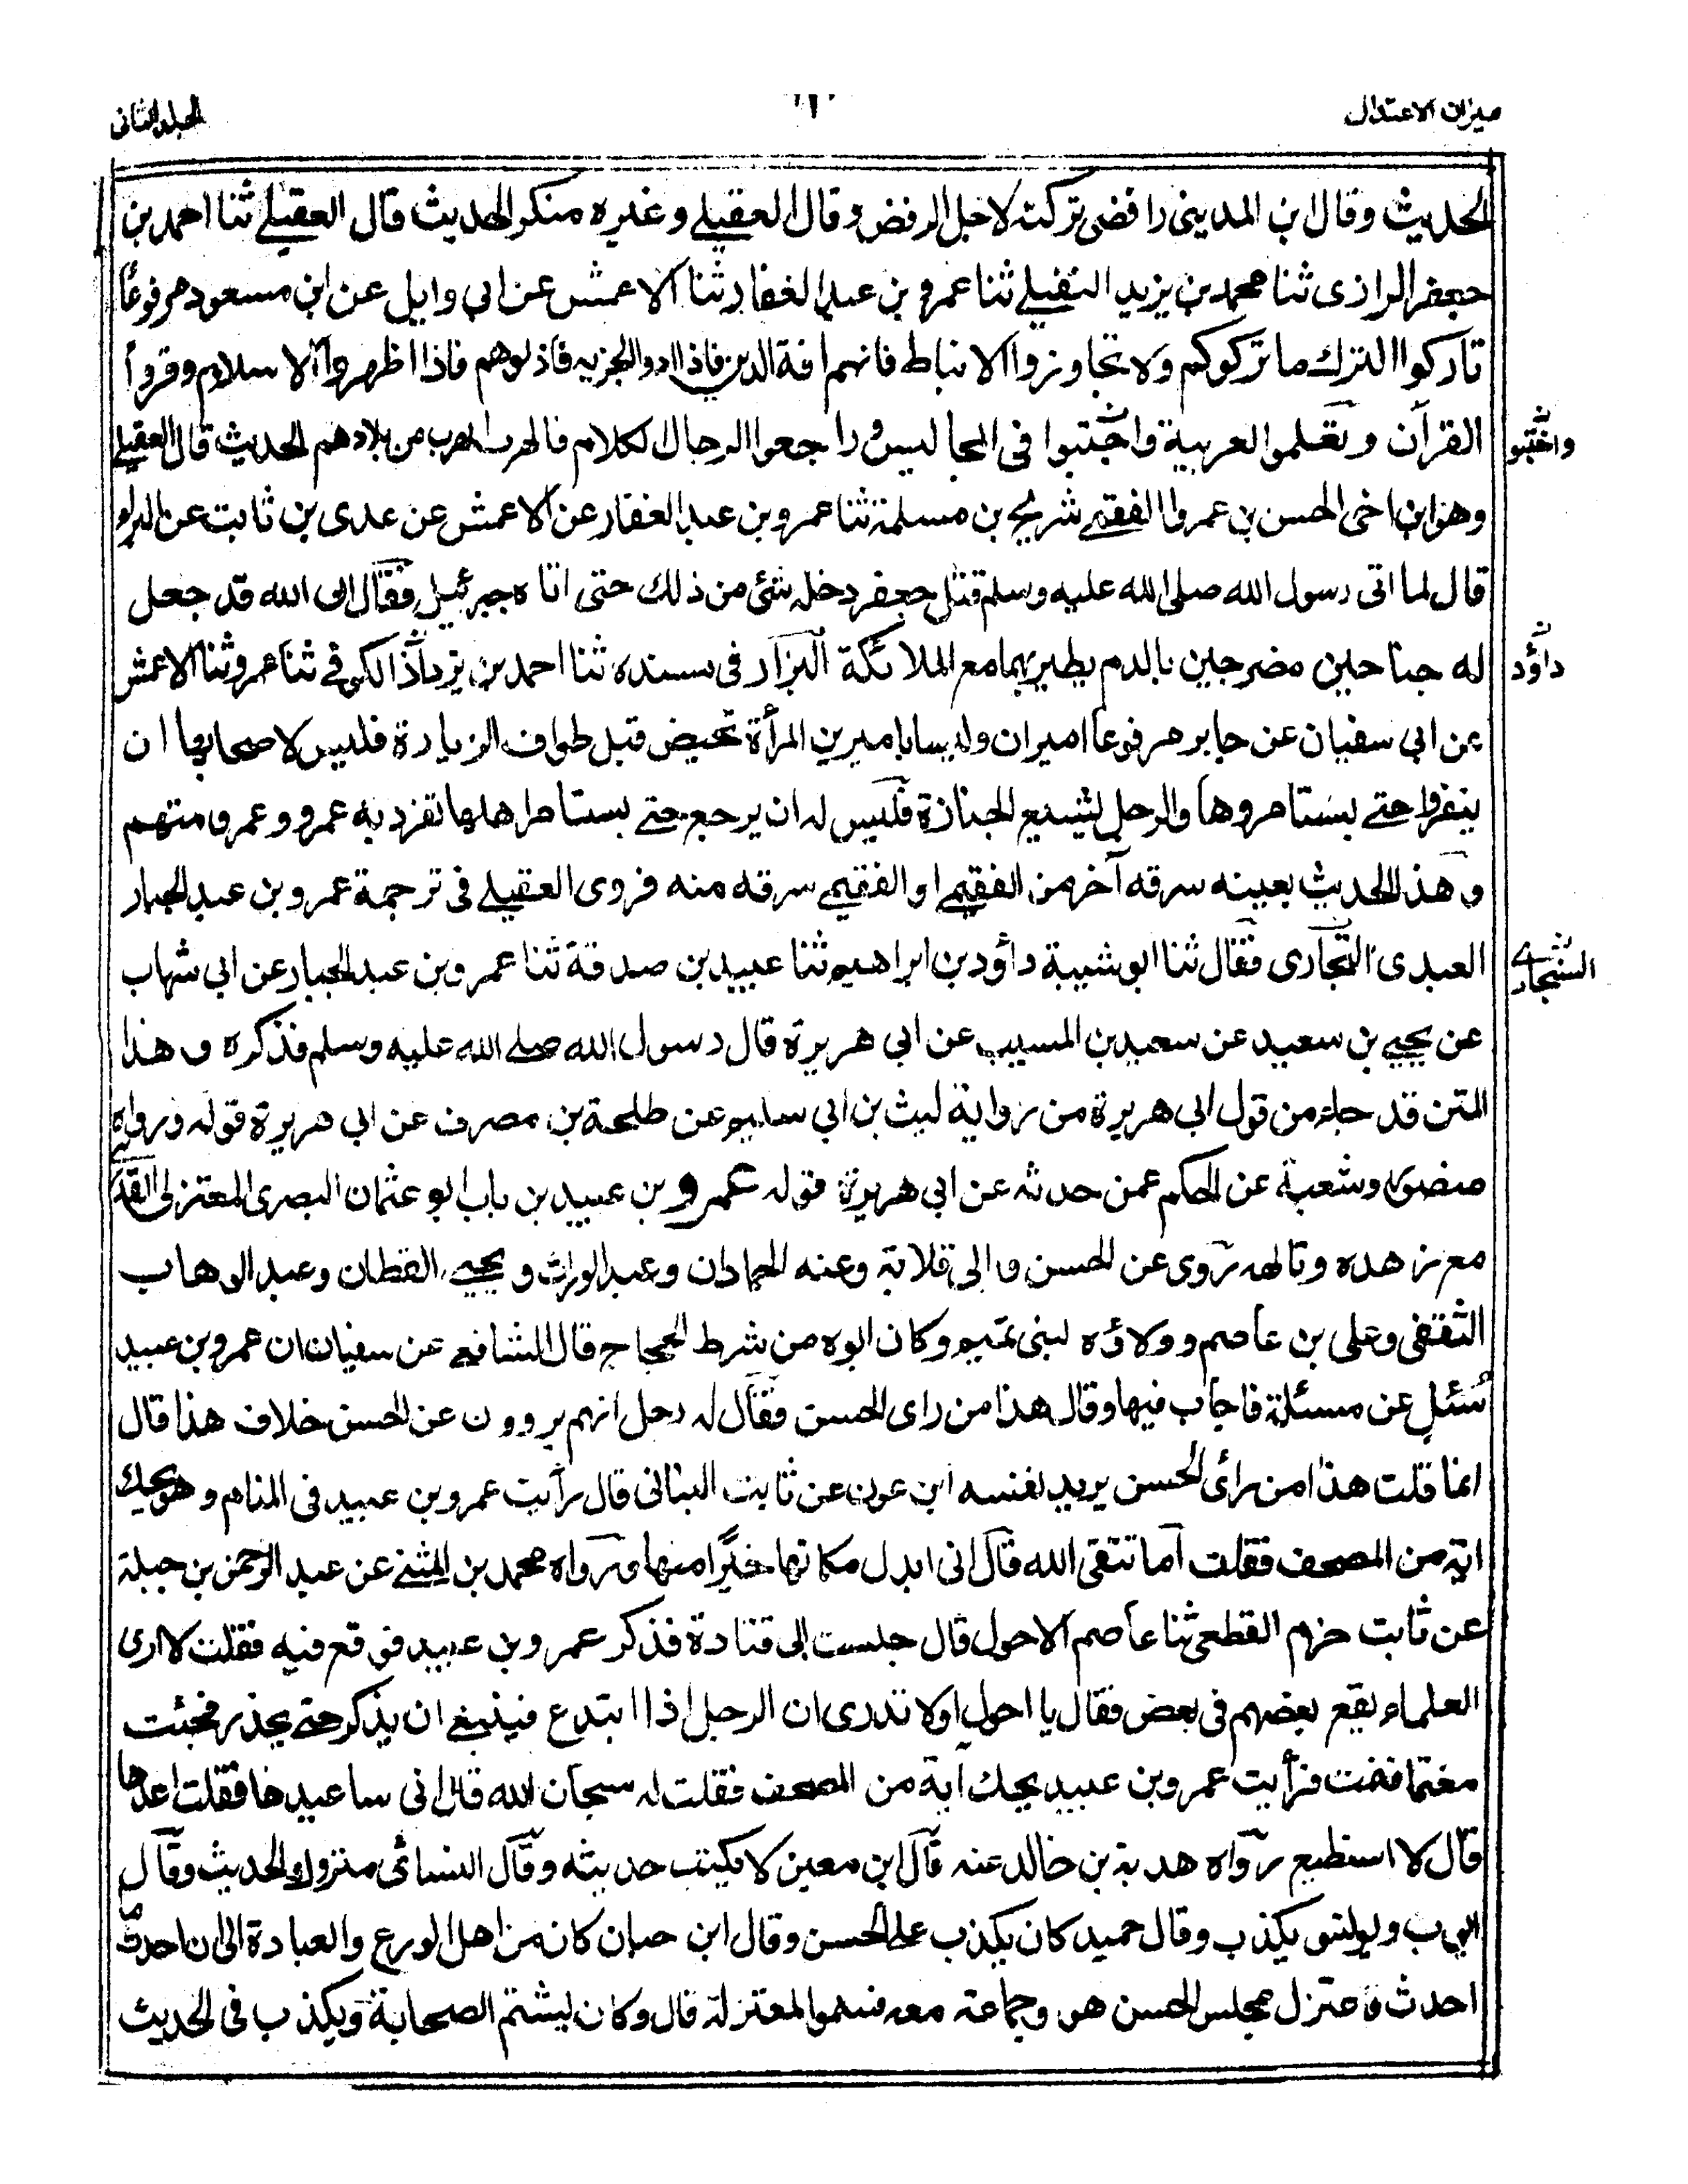 ميزان الاعتدال
الجلد الثانى
الحديث وقال ابن المدينى رافضى تركته لاجل الرفض وقال العقيلے وغيره منكر الحديث قال العقيلے ثنا احمد بن
جعفر الرازى ثنا محمد بن يزيد النفيلے ثنا عمرو بن عبد الغفار ثنا الاعمش عن ابى وايل عن ابن مسعود مرفوعًا
تاركوا الترك ما تركوكم ولا تجاوزوا الانباط فانهم افة الدين فاذا ادوا الجزيه فاذلوهم فاذا اظهروا الاسلام وقروا
القرآن وتعلموا العربية واجتبوا فى المجاليس وراجعوا الرجال الكلام فالهرب الهرب من بلادهم الحديث قال العقيلے
واختبو
وهو ابن اخى الحسن بن عمرو الفقيمے شريح بن مسلمة ثنا عمرو بن عبد الغفار عن الاعمش عن عدى بن ثابت عن البراء
قال لما اتى رسول الله صلى الله عليه وسلم قتل جعفر دخله شئ من ذلك حتى اتاه جبرئيل فقال الى الله قد جعل
له جناحين مضرجين بالدم يطير بهما مع الملائكة البزار فى مسنده ثنا احمد بن يزداذ الكوفے ثنا عمرو ثنا الاعمش
داؤد
عن ابى سفيان عن جابر مرفوعا اميران وليسا باميرين المرأة تحيض قبل طواف الزيارة فليس لاصحابها ان
ينفروا حتے يستامروها والرجل يشيع الجنازة فليس له ان يرجع حتے يستامر اهلها تفرد به عمرو وعمرو متهم
وهذا الحديث بعينه سرقه آخر من الفقيمے او الفقيمے سرقه منه فروى العقيلے فى ترجمة عمرو بن عبد الجبار
العبدى التجارى فقال ثنا ابو شيبة داؤد بن ابراهيم ثنا عبيد بن صدقة ثنا عمرو بن عبد الجبار عن ابى شهاب
السنجارے
عن يحيے بن سعيد عن سعيد بن المسيب عن ابى هريرة قال رسول الله صلے الله عليه وسلم فذكره وهذا
المتن قد جاء من قول ابى هريرة من رواية ليث بن ابى سليم عن طلحة بن مصرف عن ابى هريرة قوله ورواه
منصور وشعبة عن الحكم عمن حدثه عن ابى هريرة قوله عمرو بن عبيد بن باب ابو عثمان البصرى المعتزلى القدرے
مع زهده وتالهه روى عن الحسن وابى قلابة وعنه الحمادان وعبد الوارث ويحيے القطان وعبد الوهاب
الثقفى وعلى بن عاصم وولاؤه لبنى تميم وكان ابوه من شرط الحجاج قال الشافعے عن سفيان ان عمرو بن عبيد
سُئل عن مسئلة فاجاب فيها وقال هذا من راى الحسن فقال له رجل انهم يروون عن الحسن خلاف هذا قال
انما قلت هذا من رائ الحسن يريد نفسه ابن عون عن ثابت البنانى قال رأيت عمرو بن عبيد فى المنام وهو يحك
اية من المصحف فقلت اما تتقى الله قال انى ابدل مكانها خيرًا منها ورواه محمد بن المثنے عن عبد الرحمن بن جبلة
عن ثابت حزم القطعى ثنا عاصم الاحول قال جلست الى قتادة فذكر عمرو بن عبيد فوقع فيه فقلت لا ارى
العلماء يقع بعضهم فى بعض فقال يا احول اولا تدرى ان الرجل اذا ابتدع فينبغے ان يذكر حتے يحذر فجئت
مغتما فنمت فرأيت عمرو بن عبيد يحك آية من المصحف فقلت له سبحان الله قال انى ساعيدها فقلت اعدها
قال لا استطيع رواه هدبة بن خالد عنه قال ابن معين لا يكتب حديثه وقال النسائى متروك الحديث وقال
ايوب ويونس يكذب وقال حميد كان يكذب على الحسن وقال ابن حبان كان من اهل الورع والعبادة الى ان احدث ما
احدث واعتزل مجلس الحسن هو وجماعة معه فسموا المعتزلة قال وكان يشتم الصحابة ويكذب فى الحديث